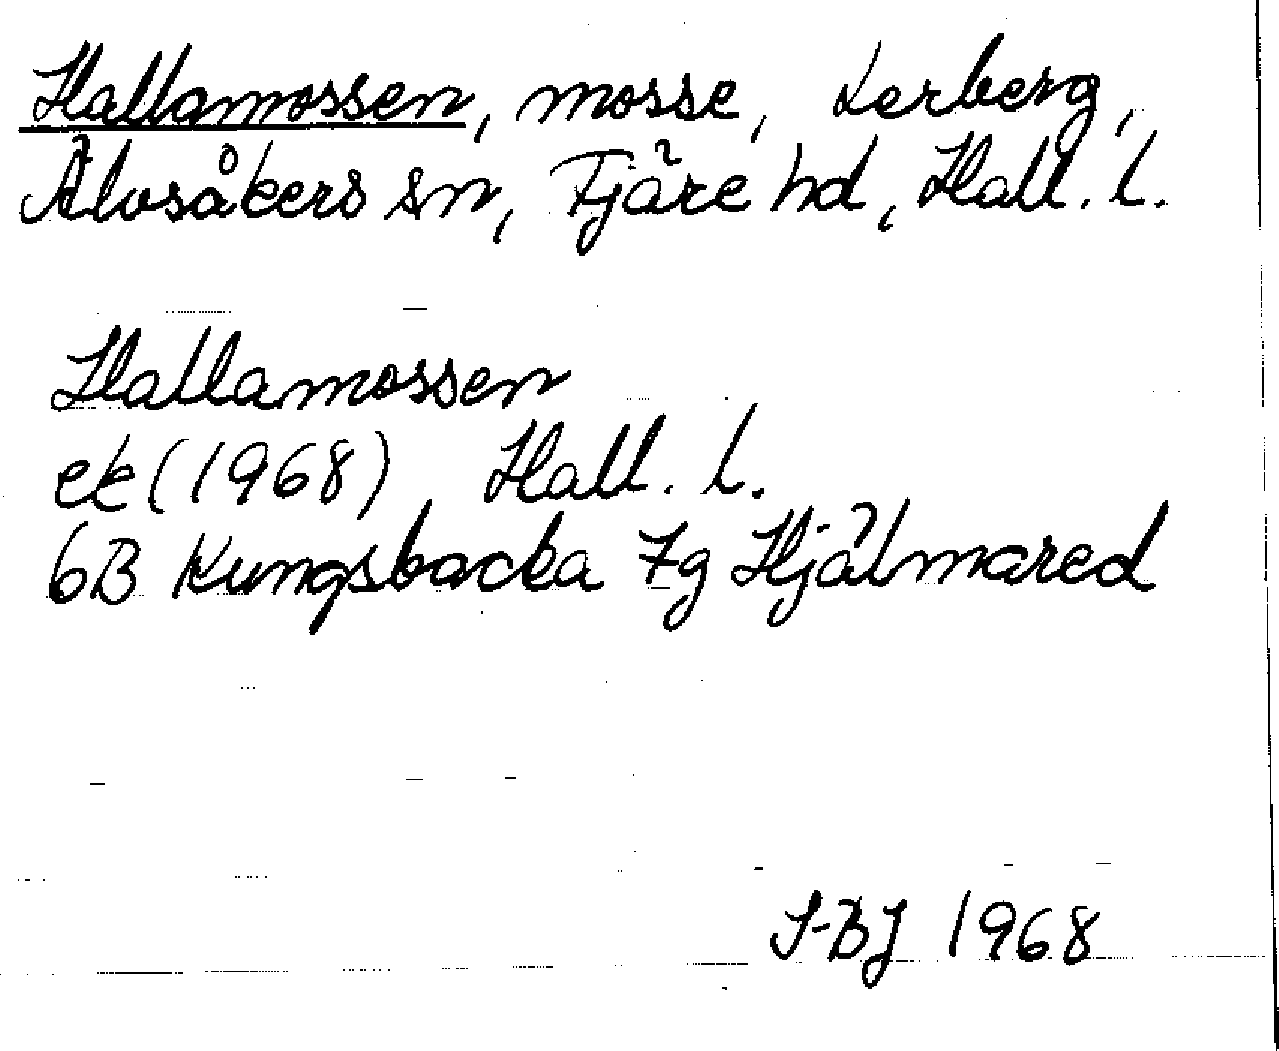 Hallamossen, mosse, Lerberg,
Älvsåkers sn, Fjäre hd, Hall. l.
Hallamossen
ek (1968), Hall. l.
6B Kungsbacka 7g Hjälmared
S-BJ 1968